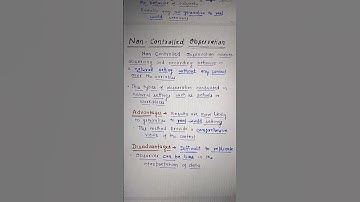 the behavior of subjects
Results may not generalize to real
world scenarios
Non-Controlled Observation
Non Controlled observation involve
observing and recording behavior in
a natural setting without any control
over the variables
This types of observation conducted in
natural settings such as schools or
workplaces
Advantages → Results are more likely
to generalize to real-world settings
This method provide a comprehensive
views of the context
Disadvantages → Difficult to replicate
observer can be bias in the
interpretation of data